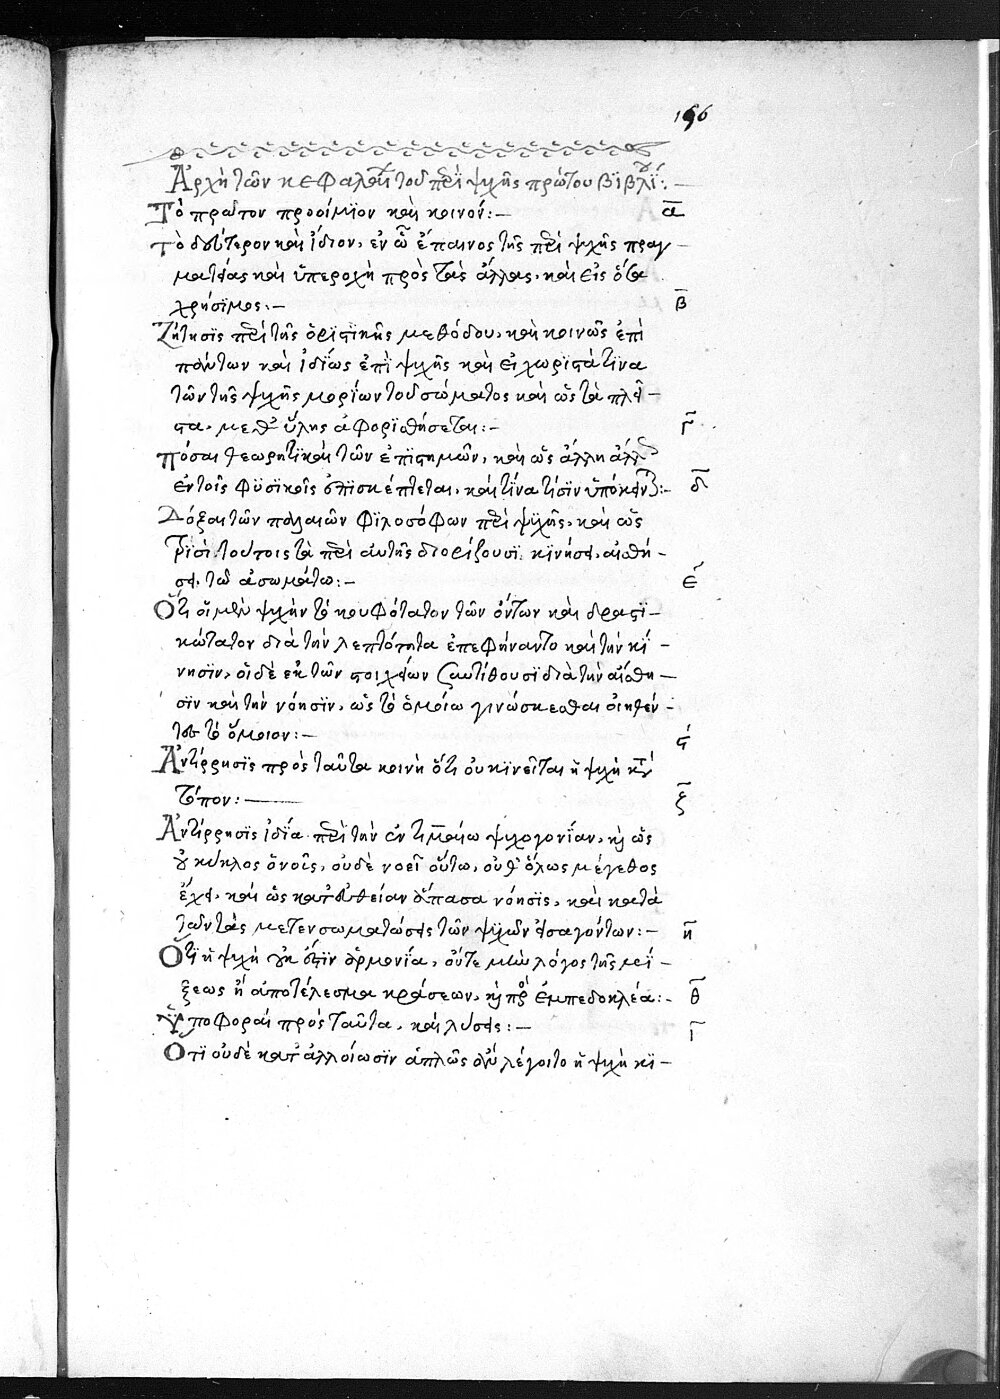 196
Ἀρχὴ τῶν κεφαλαίων τοῦ περὶ ψυχῆς πρώτου βιβλίου:—
Τὸ πρῶτον προοίμιον καὶ κοινόν:— α
τὸ δεύτερον καὶ ἴδιον, ἐν ᾧ ἔπαινος τῆς περὶ ψυχῆς πραγ—
ματείας καὶ ὑπεροχὴ πρὸς τὰς ἄλλας, καὶ εἰς ὅτα
χρήσιμος:— β
Ζήτησις περὶ τῆς ὁριστικῆς μεθόδου, καὶ κοινῶς ἐπὶ
πάντων καὶ ἰδίως ἐπὶ ψυχῆς καὶ εἰ χωριστά τινα
τῶν τῆς ψυχῆς μορίων τοῦ σώματος καὶ ὡς τὰ πλεῖ—
στα, μεθ' ὕλης ἀφορισθήσεται:— γ
πόσαι θεωρητικαὶ τῶν ἐπιστημῶν, καὶ ὡς ἄλλη ἄλλ
ἐν τοῖς φυσικοῖς ἐπισκέπτεται, καὶ τίνα τίσιν ὑπόκειν:— δ
Δόξαι τῶν παλαιῶν φιλοσόφων περὶ ψυχῆς, καὶ ὡς
τρισὶ τούτοις τὰ περὶ αὐτῆς διορίζουσι, κινήσει, αἰσθή—
σει, τῷ ἀσωμάτῳ:— ε
Ὅτι οἱ μὲν ψυχὴν τὸ κουφότατον τῶν ὄντων καὶ δραστι—
κώτατον διὰ τὴν λεπτότητα ἐπεφήναντο καὶ τὴν κί—
νησιν, οἱ δὲ ἐκ τῶν στοιχείων συντίθουσι διὰ τὴν αἴσθη—
σιν καὶ τὴν νόησιν, ὡς τὸ ὁμοίῳ γινώσκεσθαι οἰηθέν—
τες τὸ ὅμοιον:— ς
Ἀντίρρησις πρὸς ταῦτα κοινὴ ὅτι οὐ κινεῖται ἡ ψυχὴ κατὰ
τόπον:— ζ
Ἀντίρρησις ἰδία περὶ τὴν ἐν τιμαίῳ ψυχογονίαν, καὶ ὡς
οὐ κύκλος ὁ νοῦς, οὐδὲ νοεῖ οὕτω, οὐθ' ὅλως μέγεθος
ἔχει, καὶ ὡς κατ' εὐθεῖαν ἅπασα νόησις, καὶ κατὰ
τῶν τὰς μετενσωματώσεις τῶν ψυχῶν εἰσαγόντων:— η
Ὅτι ἡ ψυχὴ οὐκ ἔστιν ἁρμονία, οὔτε μὴν λόγος τῆς μί—
ξεως ἢ ἀποτέλεσμα κράσεων, καὶ πρὸς ἐμπεδοκλέα:— θ
Ὑποφοραὶ πρὸς ταῦτα, καὶ λύσεις:— ι
Ὅτι οὐδὲ κατ' ἀλλοίωσιν ἁπλῶς ἂν λέγοιτο ἡ ψυχὴ κι—